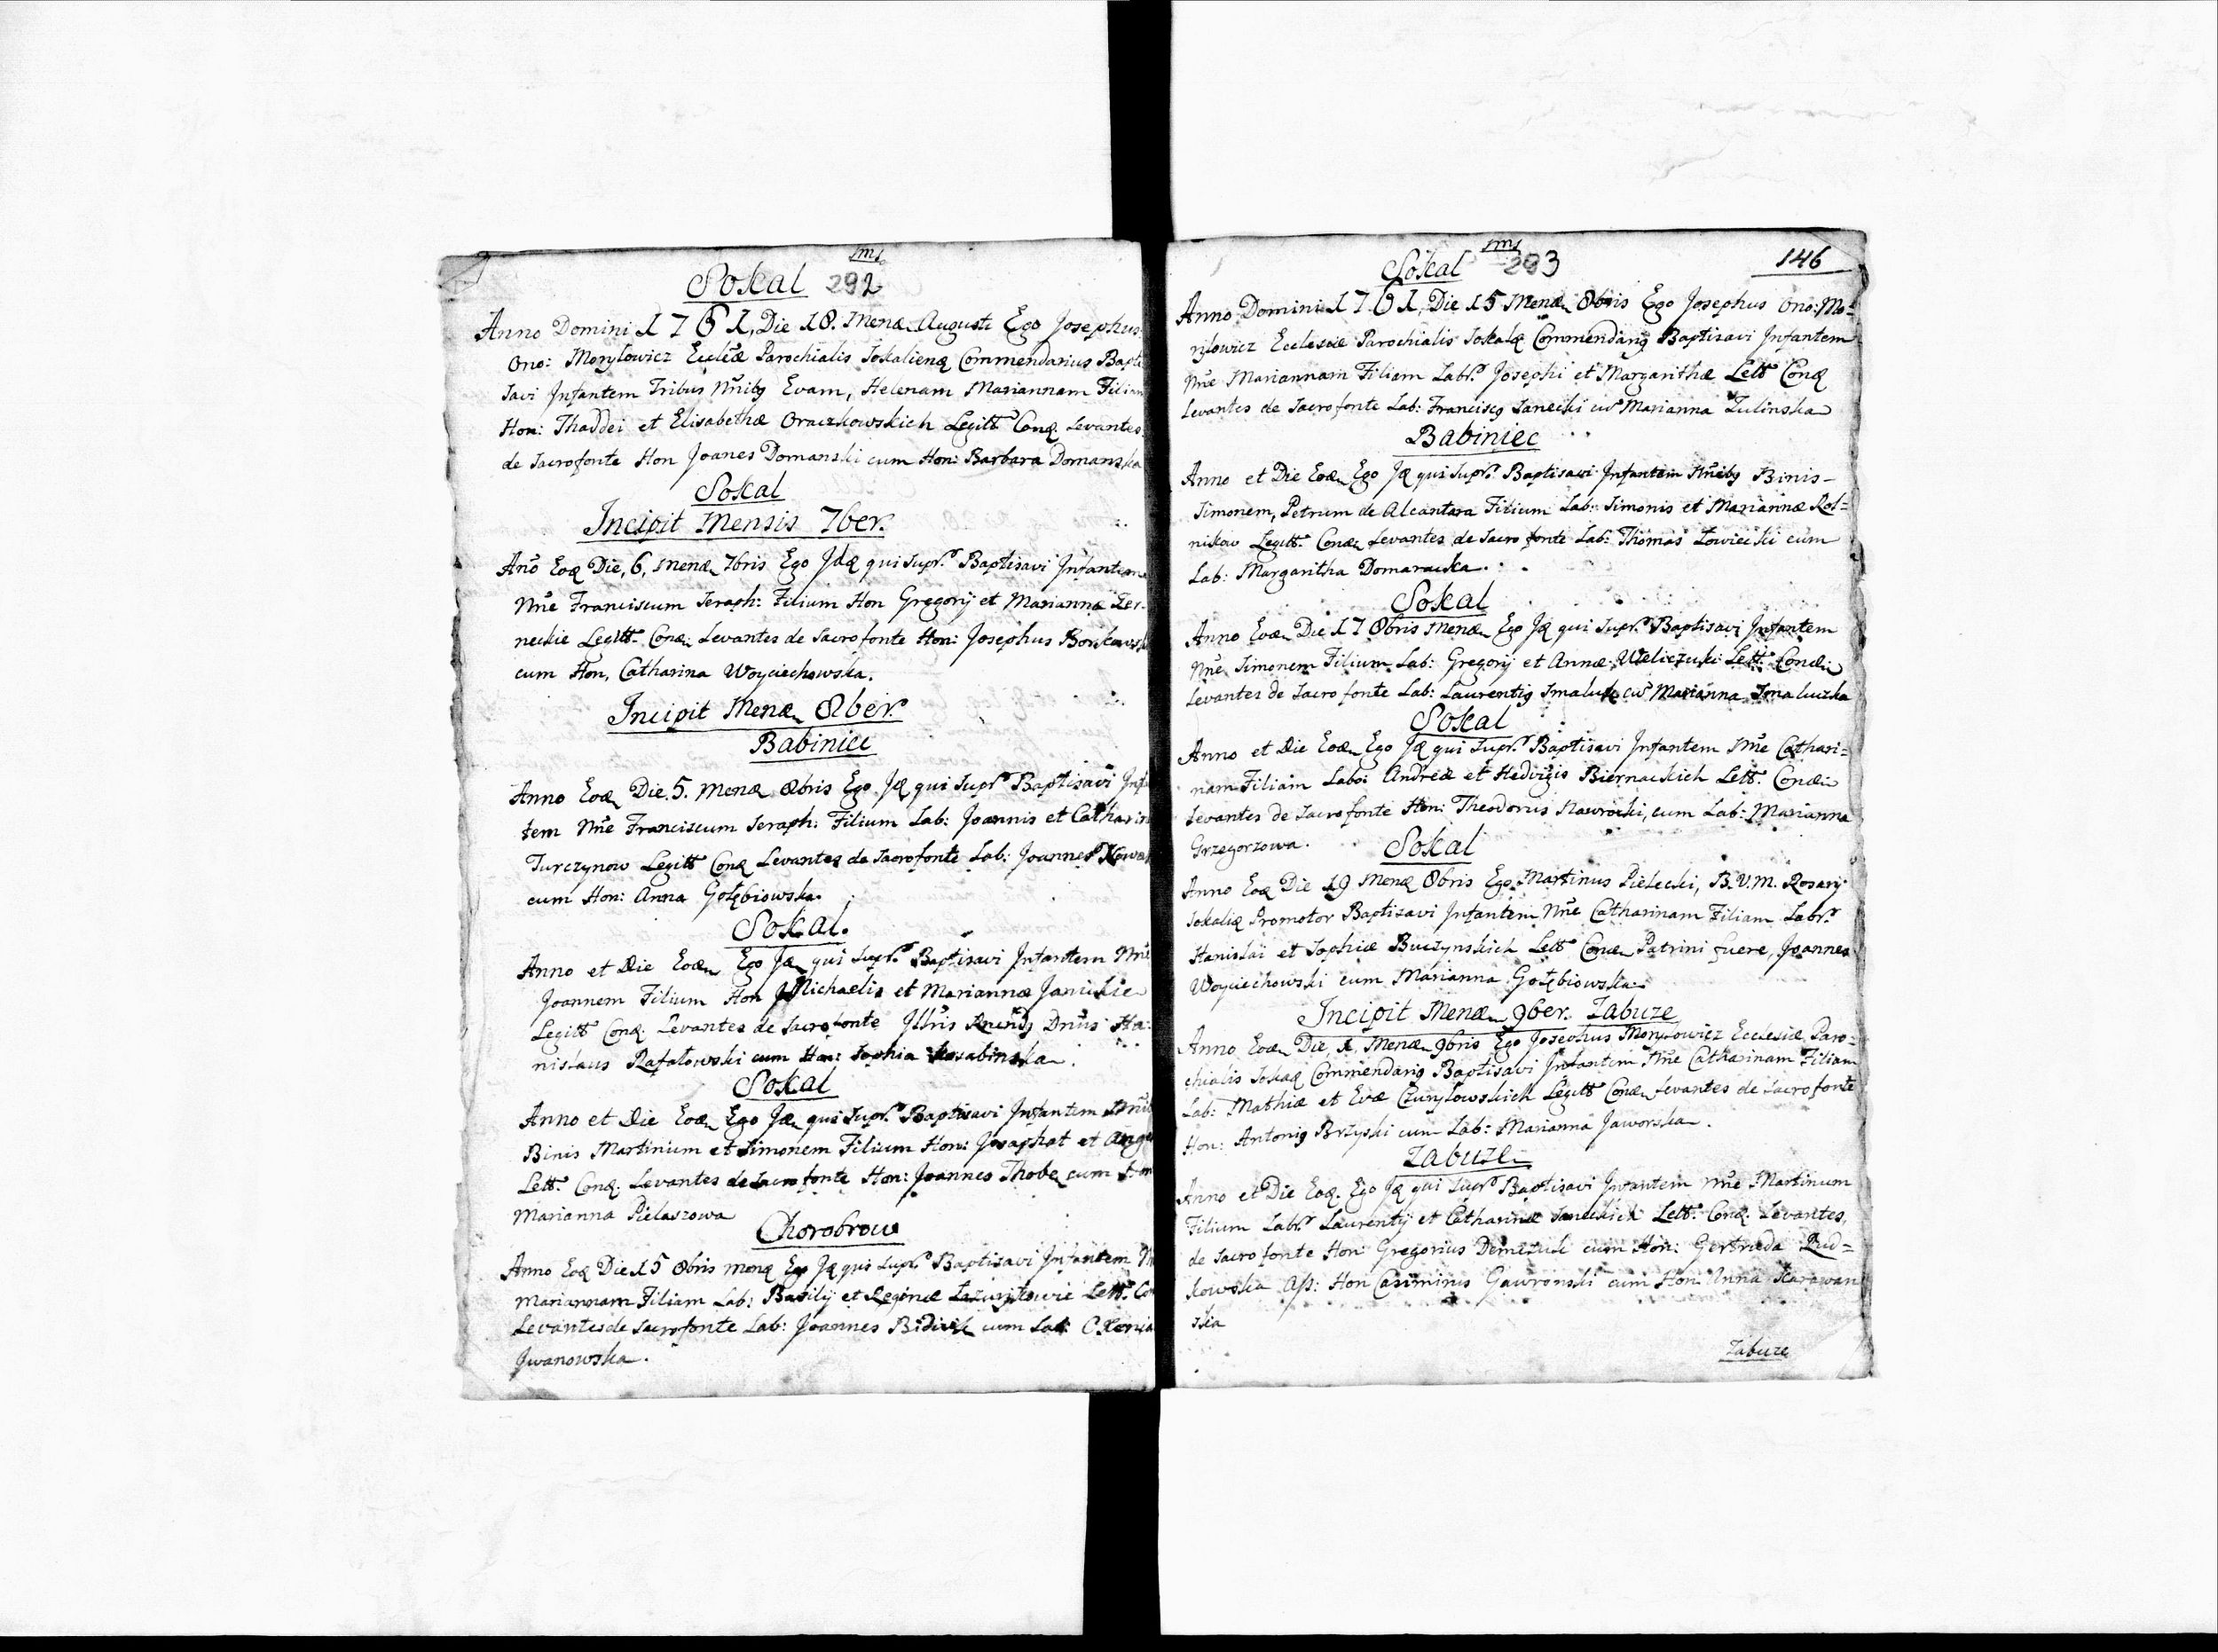 Sokal 292
Anno Domini 1761, Die 18. Mensæ Augusti Ego Josephus
Ono: Morylowicz Eccleæ Parochialis Sokalienq Commendarius Bapti
savi Infantem Tribus Nnibq Evam, Helenam Mariannam Filiam
Hon: Thaddei et Elisabethæ Oraczkowskich Legitt Conq. Levantes
de Sacrofonte Hon Joanes Domanski cum Hon: Barbara Domanska
Sokal
Incipit Mensis 7ber.
Ano Eoq Die, 6, Menæ 7bris Ego Jdq qui supr. Baptisavi Infantem
Nne Franciscum Seraph: Filium Hon Gregorij et Mariannæ
neckie Legitt. Conæ. Levantes de Sacro fonte Hon: Josephus
cum Hon, Catharina Woyciechowska.
Incipit Menæ 8ber.
Babiniec
Anno Eoq Die. 5. Menæ 8bris Ego Jq qui supr Baptisavi Infa
tem Nne Franciscum Seraph: Filium Lab: Joannis et Catharin
Turczynow Legitt Conq Levantes de Sacrofonte Lab: Joannes
cum Hon: Anna Gołębiowska.
Sokal.
Anno et Die Eoæ Ego Jæ qui supr. Baptisavi Infantem Nne
Joannem Filium Hon Michaelis et Mariannæ Janickie
Legitt Conq. Levantes de Sacro fonte Jllris Dnus Sta:
nislaus Rafałowski cum Hon: Sophia
Sokal
Anno et Die Eoæ Ego Jæ qui supr. Baptisavi Infantem Nnib
Binis Martinium et Simonem Filium Hon: Josaphat et
Lett. Conq. Levantes de Sacro fonte Hon: Joannes Thobe cum Hon
Marianna Pielaszowa
Chorobrow
Anno Eoq Die 15 8bris Menq Ego Jq qui supr. Baptisavi Infantem N
Mariannam Filiam Lab: Basilij et Reginæ Lett. Co
Levantes de Sacrofonte Lab: Joannes cum Lab: Oxenia
Jwanowska.
Sokal 293
146
Anno Domini 1761, Die 15 Menæ 8bris Ego Josephus Ono: Mo=
rylowicz Ecclesiæ Parochialis Sokalq Commendariq Baptisavi Infantem
Nne Mariannam Filiam Labr. Josephi et Margarithæ Lett Conq
Levantes de Sacro fonte Lab: Franciscq Janecki cu Marianna Zulinska
Babiniec
Anno et Die Eoæ Ego Jq qui supr. Baptisavi Infantem Nnibq Binis-
Simonem, Petrum de Alcantara Filium Lab: Simonis et Mariannæ Rol=
nikow Legitt. Conæ Levantes de Sacro fonte Lab: Thomas Łowiecki cum
Lab: Margaritha Domaracka.
Sokal
Anno Eoæ Die 17 8bris Menæ Ego Jq qui supr. Baptisavi Infantem
Nne Simonem Filium Lab: Gregorij et Annæ Weliczuki Lett. Conæ
Levantes de Sacro fonte Lab: Laurentiq Smaluk cu Marianna Smaluczka
Sokal
Anno et Die Eoæ Ego Jq qui supr. Baptisavi Infantem Nne Cathari=
nam Filiam Labo: Andreæ et Hedvigis Biernackich Lett. Conæ
Levantes de Sacro fonte Hon: Theodorus Nawrocki, cum Lab: Marianna
Grzegorzowa.
Sokal
Anno Eoq Die 19 Menq 8bris Ego Martinus Pielecki, B.V.M. Rosarij
Sokaliq Promotor Baptisavi Infantem Nne Catharinam Filiam Labr.
Stanislai et Sophiæ Buczynskich Lett Conæ Patrini fuere, Joannes
Woyciechowski cum Marianna Gołębiowska
Incipit Menæ 9ber. Zabuze
Anno Eoæ Die, 1, Menæ 9bris Ego Josephus Morylowicz Ecclesiæ Paro=
chialis Sokaq Commendariq Baptisavi Infantem Nne Catharinam Filiam
Lab: Mathiæ et Evæ Czuryłowskich Legitt Conæ Levantes de Sacro fonte
Hon: Antoniq Brzyski cum Lab: Marianna Jaworska.
Zabuze
Anno et Die Eoq. Ego Jq qui supr Baptisavi Infantem Nne Martinum
Filium Labr. Laurentij et Catharinæ Janeckich Lett. Conq. Levantes,
de Sacro fonte Hon Gregorius Demczuk cum Hon: Gertruda Rud=
kowska Ass: Hon Casimirus Gawronski cum Hon Anna Karawan
ska
Zabuze